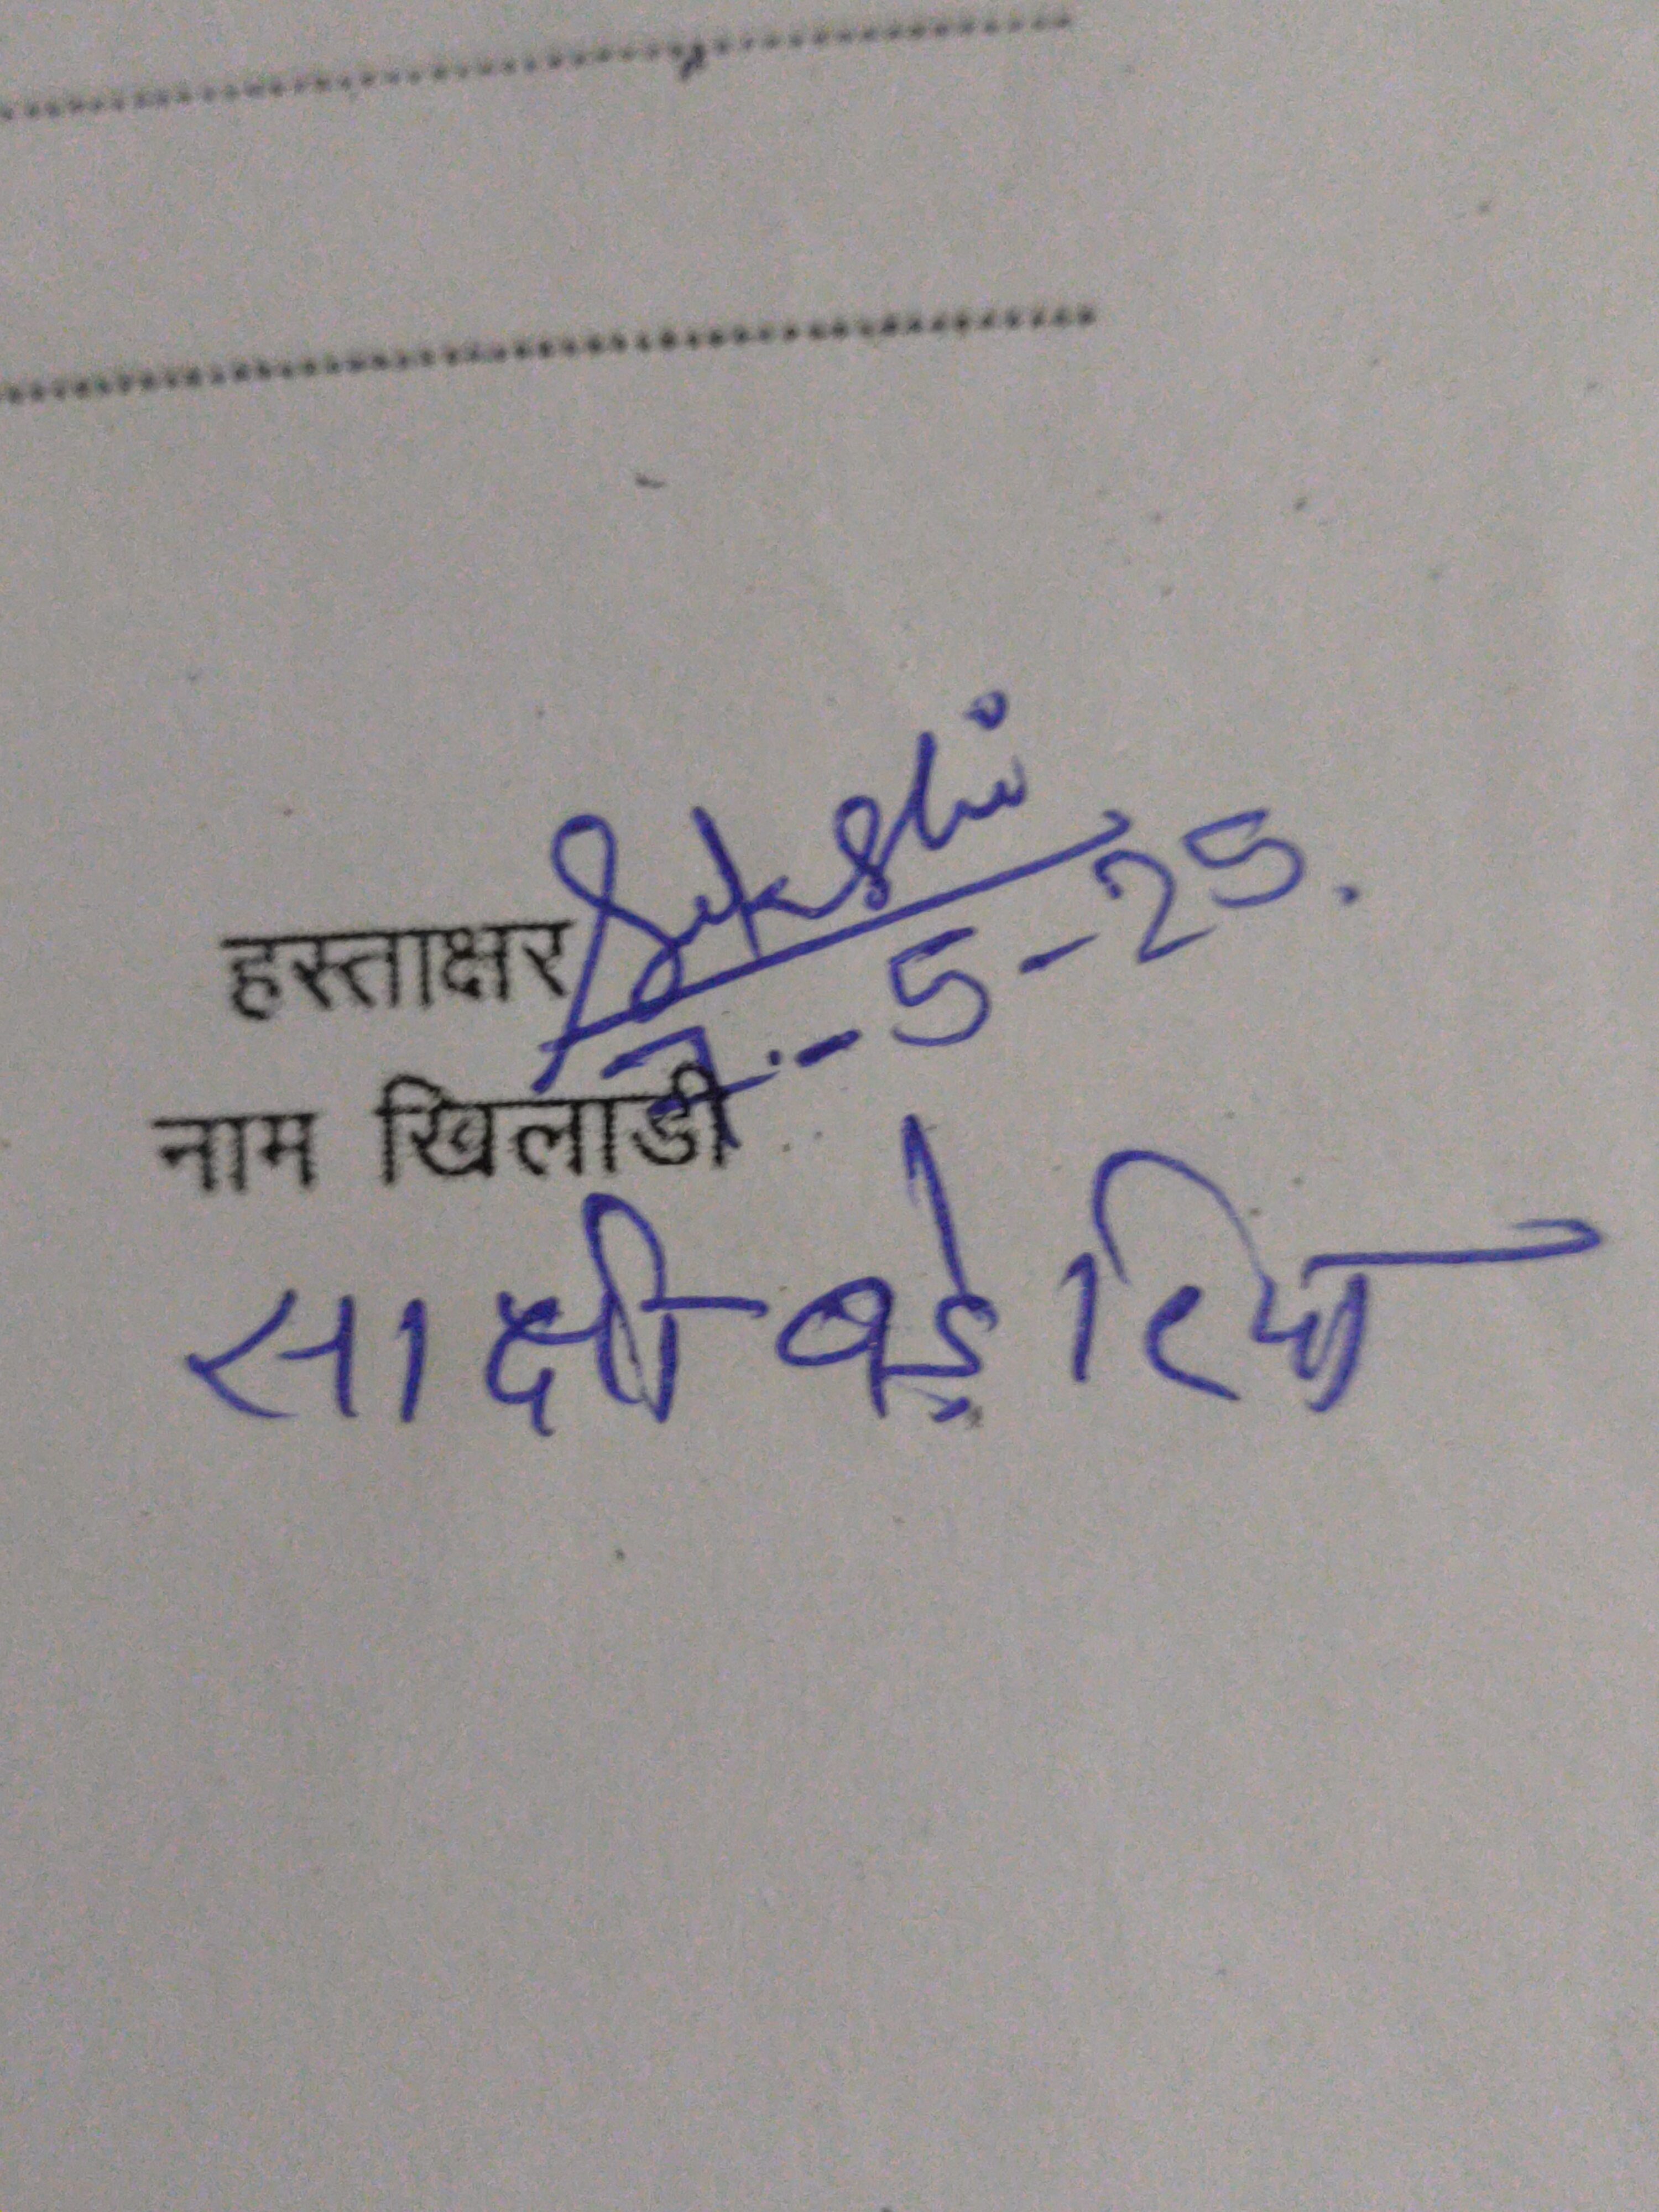 हस्ताक्षर Sakshi
7-5-25.
नाम खिलाडी
साक्षी बड़ेरिया